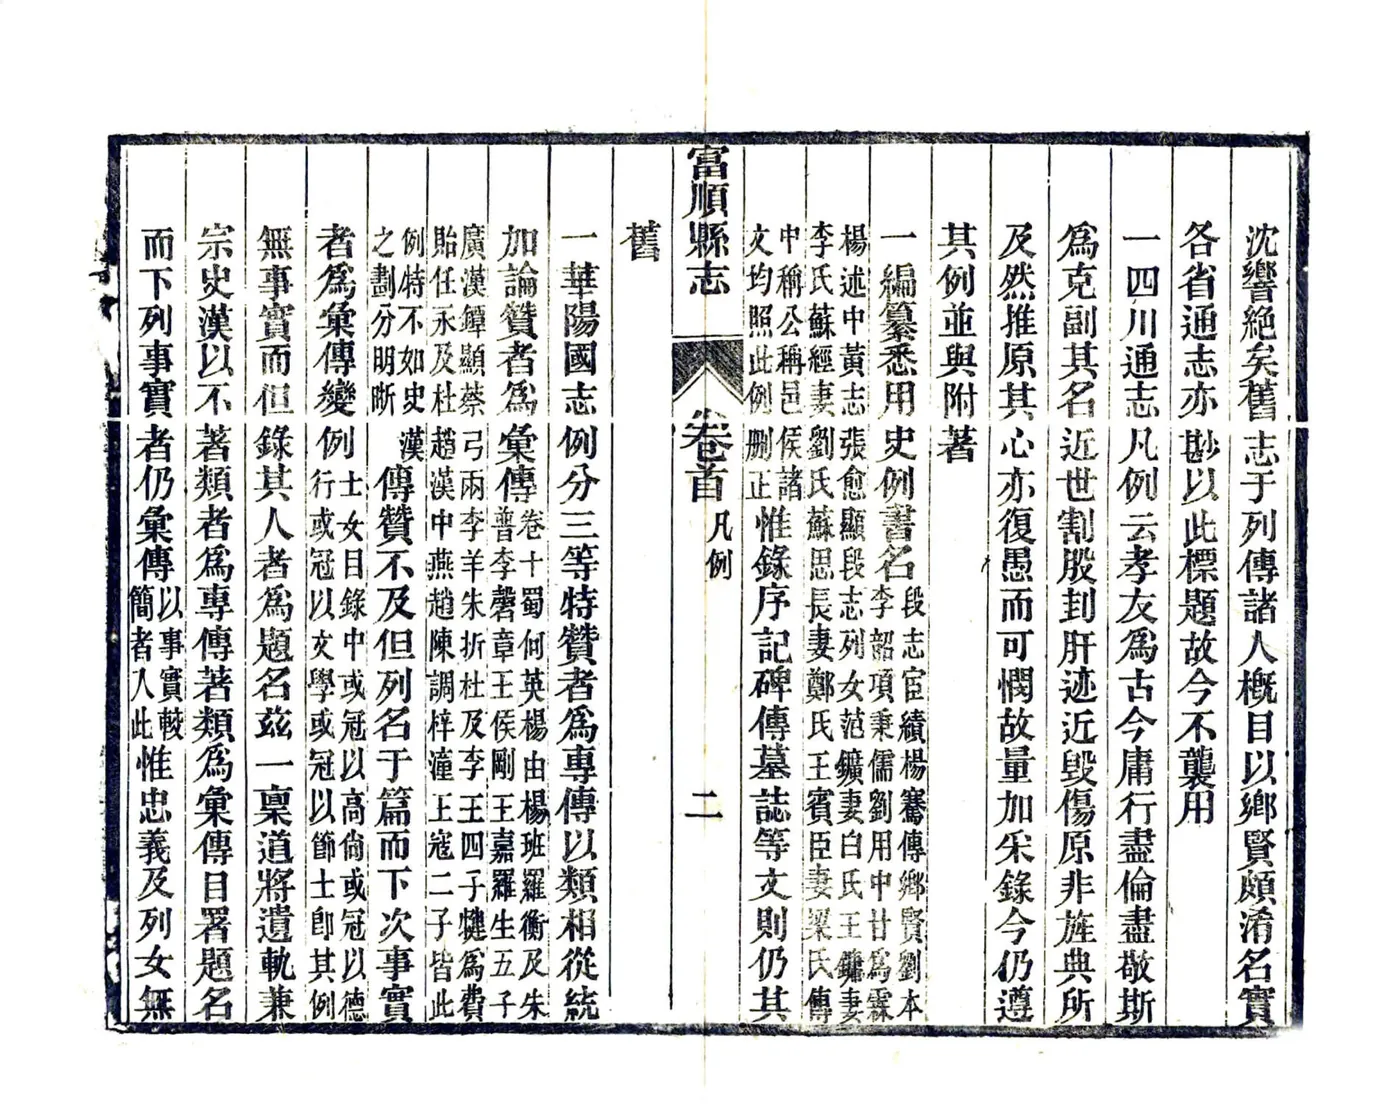 沈響絕矣舊志于列傳諸人槪目以鄉賢頗淆名實
各省通志亦尠以此標題故今不襲用
一四川通志凡例云孝友爲古今庸行盡倫盡敬斯
爲克副其名近世割股刲肝迹近毀傷原非旌典所
及然推原其心亦復愚而可憫故量加采錄今仍遵
其例並與附著
一編纂悉用史例書名段志宦績楊騫傳鄉賢劉本李韶項秉儒劉用中甘爲霖
楊述中黃志張愈顯段志列女范鑛妻白氏王鏞妻李氏蘇經妻劉氏蘇思長妻鄭氏王賓臣妻梁氏傳
中稱公稱邑侯諸文均照此例删正惟錄序記碑傳墓誌等文則仍其
富順縣志 卷首 凡例 二
舊
一華陽國志例分三等特贊者爲專傳以類相從統
加論贊者爲彙傳卷十蜀何英楊由楊班羅衡及朱普李磬章王侯剛王嘉羅生五子
廣漢鐔顯蔡弓兩李羊朱折杜及李王四子犍爲費貽任永及杜趙漢中燕趙陳調梓潼王寇二子皆此
例特不如史漢之劃分明晰傳贊不及但列名于篇而下次事實
者爲彙傳變例士女目錄中或冠以高尙或冠以德行或冠以文學或冠以節士卽其例
無事實而但錄其人者爲題名茲一稟道將遺軌兼
宗史漢以不著類者爲專傳著類爲彙傳目署題名
而下列事實者仍彙傳以事實較簡者人此惟忠義及列女無